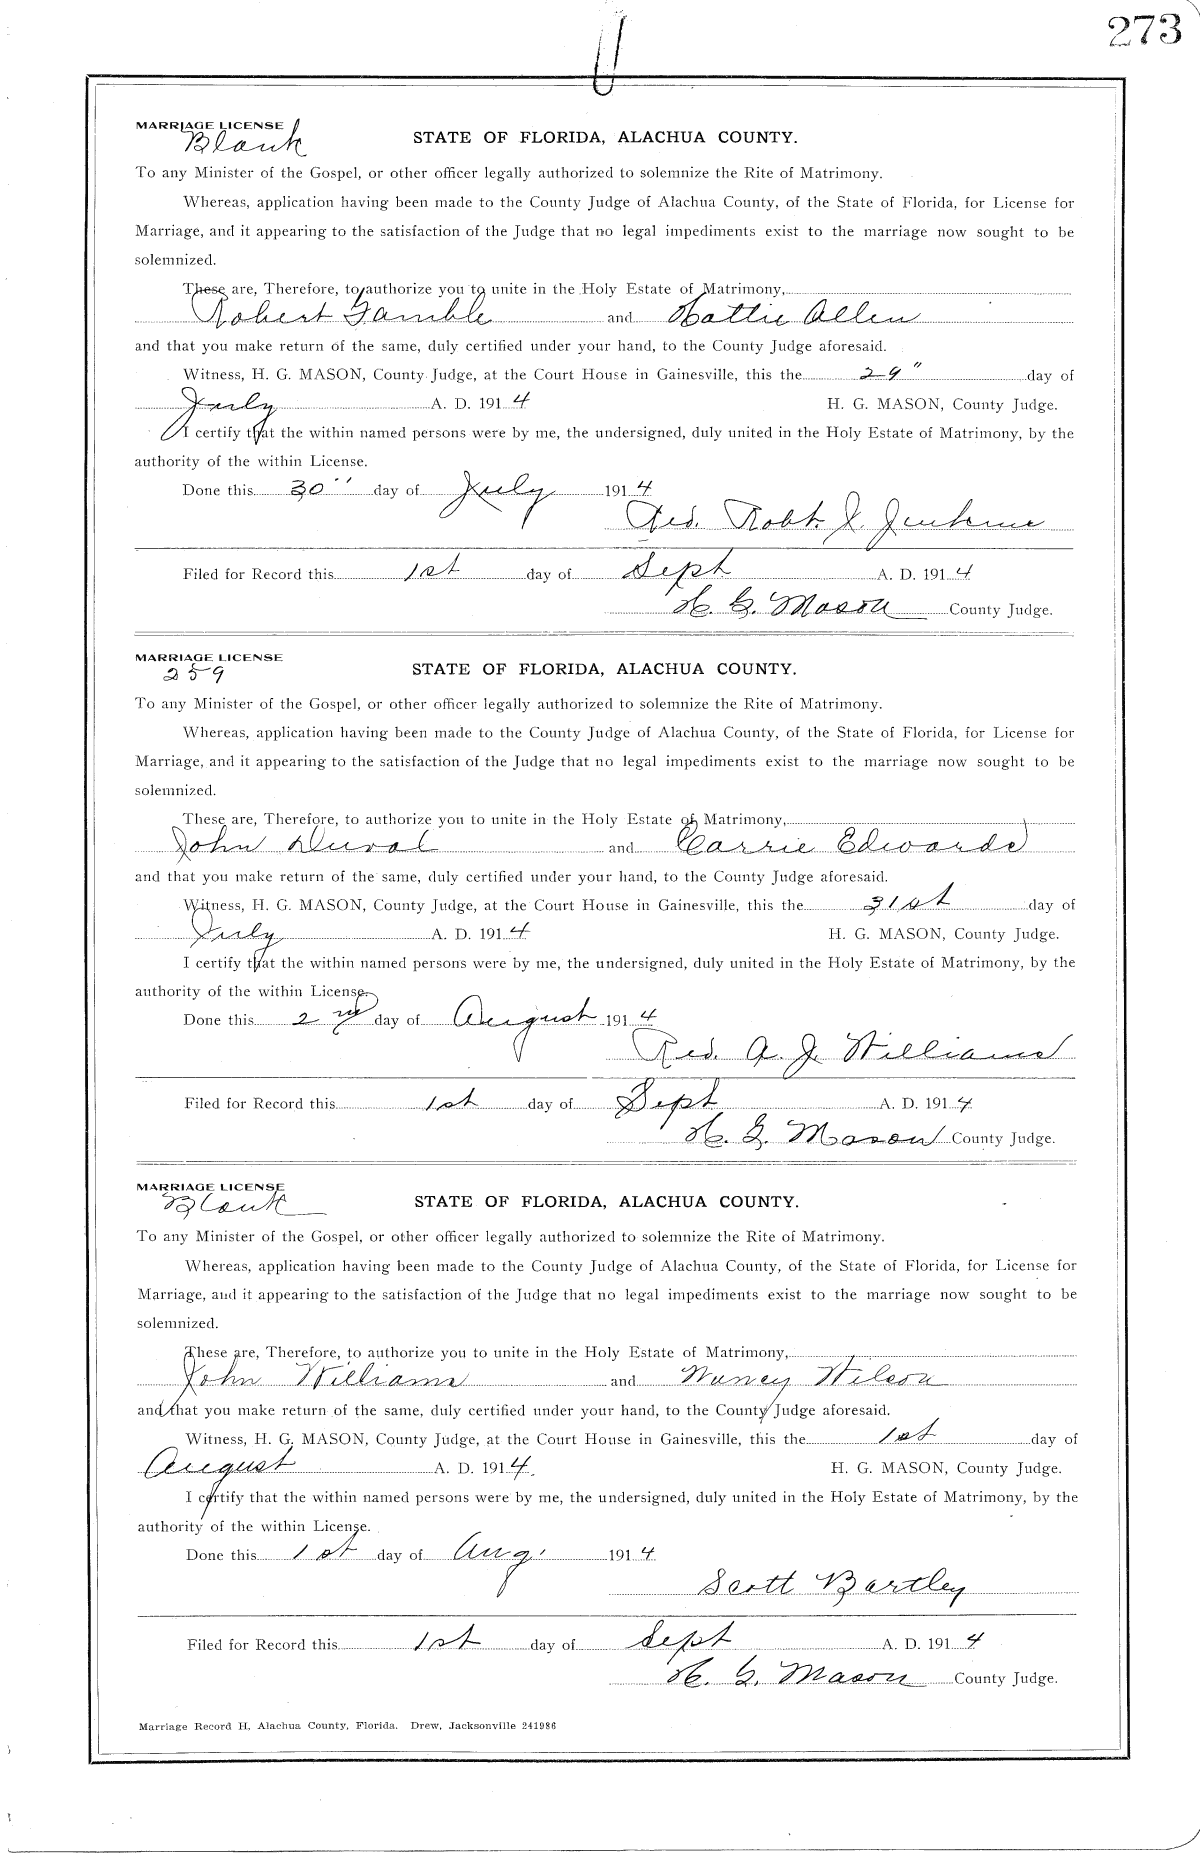 273
MARRIAGE LICENSE
Blank
STATE OF FLORIDA, ALACHUA COUNTY.
To any Minister of the Gospel, or other officer legally authorized to solemnize the Rite of Matrimony.
Whereas, application having been made to the County Judge of Alachua County, of the State of Florida, for License for
Marriage, and it appearing to the satisfaction of the Judge that no legal impediments exist to the marriage now sought to be
solemnized.
These are, Therefore, to authorize you to unite in the Holy Estate of Matrimony,
Robert Gamble and Hattie Allen
and that you make return of the same, duly certified under your hand, to the County Judge aforesaid.
Witness, H. G. MASON, County Judge, at the Court House in Gainesville, this the 29" day of
July A. D. 1914 H. G. MASON, County Judge.
I certify that the within named persons were by me, the undersigned, duly united in the Holy Estate of Matrimony, by the
authority of the within License.
Done this 30" day of July 1914
Rev. Robt. J. Jenkins
Filed for Record this 1st day of Sept A. D. 1914
H. G. Mason County Judge.
MARRIAGE LICENSE
259
STATE OF FLORIDA, ALACHUA COUNTY.
To any Minister of the Gospel, or other officer legally authorized to solemnize the Rite of Matrimony.
Whereas, application having been made to the County Judge of Alachua County, of the State of Florida, for License for
Marriage, and it appearing to the satisfaction of the Judge that no legal impediments exist to the marriage now sought to be
solemnized.
These are, Therefore, to authorize you to unite in the Holy Estate of Matrimony,
John Duval and Carrie Edwards
and that you make return of the same, duly certified under your hand, to the County Judge aforesaid.
Witness, H. G. MASON, County Judge, at the Court House in Gainesville, this the 31st day of
July A. D. 1914 H. G. MASON, County Judge.
I certify that the within named persons were by me, the undersigned, duly united in the Holy Estate of Matrimony, by the
authority of the within License.
Done this 2nd day of August 1914
Rev. A. J. Williams
Filed for Record this 1st day of Sept A. D. 1914
H. G. Mason County Judge.
MARRIAGE LICENSE
Blank
STATE OF FLORIDA, ALACHUA COUNTY.
To any Minister of the Gospel, or other officer legally authorized to solemnize the Rite of Matrimony.
Whereas, application having been made to the County Judge of Alachua County, of the State of Florida, for License for
Marriage, and it appearing to the satisfaction of the Judge that no legal impediments exist to the marriage now sought to be
solemnized.
These are, Therefore, to authorize you to unite in the Holy Estate of Matrimony,
John Williams and Nancy Wilson
and that you make return of the same, duly certified under your hand, to the County Judge aforesaid.
Witness, H. G. MASON, County Judge, at the Court House in Gainesville, this the 1st day of
August A. D. 1914. H. G. MASON, County Judge.
I certify that the within named persons were by me, the undersigned, duly united in the Holy Estate of Matrimony, by the
authority of the within License.
Done this 1st day of Aug. 1914
Scott Bartley
Filed for Record this 1st day of Sept A. D. 1914
H. G. Mason County Judge.
Marriage Record H, Alachua County, Florida. Drew, Jacksonville 241986